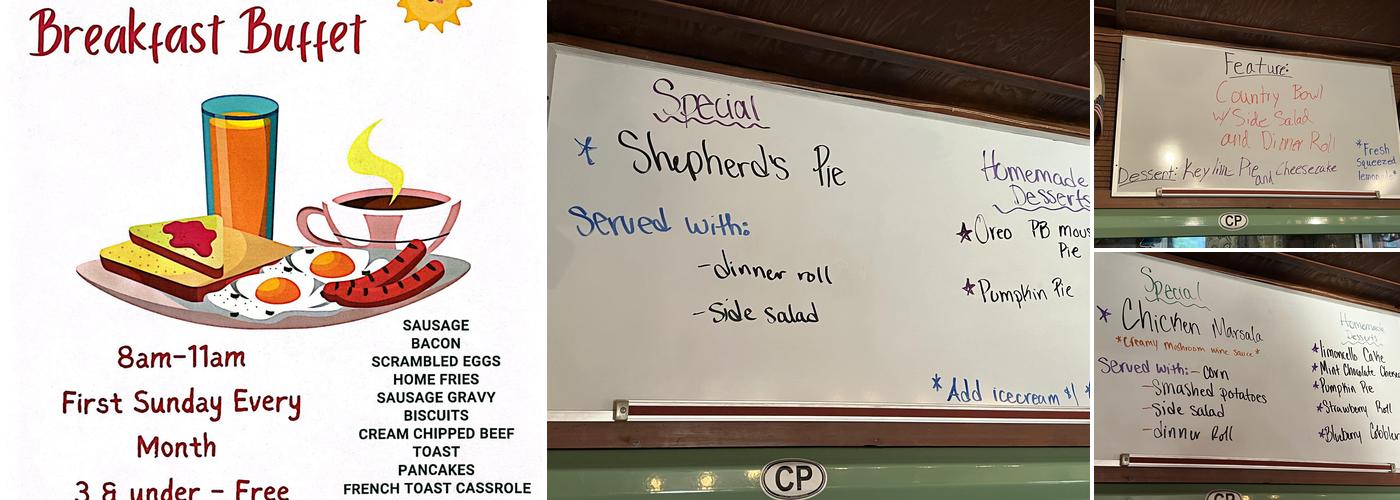 Breakfast Buffet
8am-11am
First Sunday Every
Month
3 & under - Free
SAUSAGE
BACON
SCRAMBLED EGGS
HOME FRIES
SAUSAGE GRAVY
BISCUITS
CREAM CHIPPED BEEF
TOAST
PANCAKES
FRENCH TOAST CASSROLE
Special
* Shepherd's Pie
Served with:
- dinner roll
- Side salad
Homemade
Desserts
* Oreo PB mous
Pie
* Pumpkin Pie
* Add icecream $1 *
CP
Feature:
Country Bowl
w/ Side Salad
and Dinner Roll
Dessert: Key lime Pie and Cheesecake
*Fresh
Squeezed
lemonade*
CP
Special
* Chicken Marsala
*Creamy mushroom wine sauce*
Served with: - Corn
- Smashed potatoes
- Side salad
- dinner Roll
Homemade
Desserts
* limoncello Cake
* Mint Chocolate Cheesec
* Pumpkin Pie
* Strawberry Roll
* Blueberry Cobbler
CP